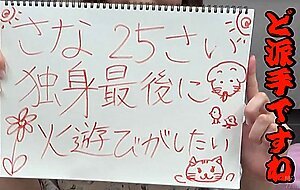 さな 25さい
独身最後に
火遊びがしたい
ど派手ですね